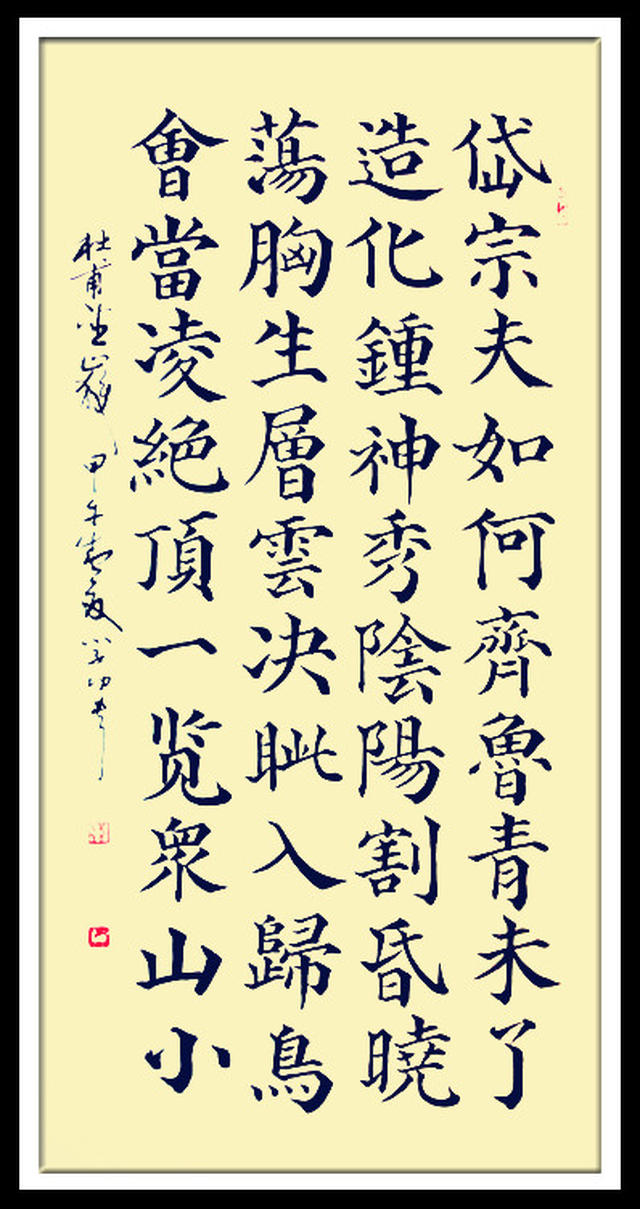 岱宗夫如何齊魯青未了
造化鍾神秀陰陽割昏曉
蕩胸生層雲决眦入歸鳥
會當凌絕頂一览衆山小
杜甫望嶽 甲午